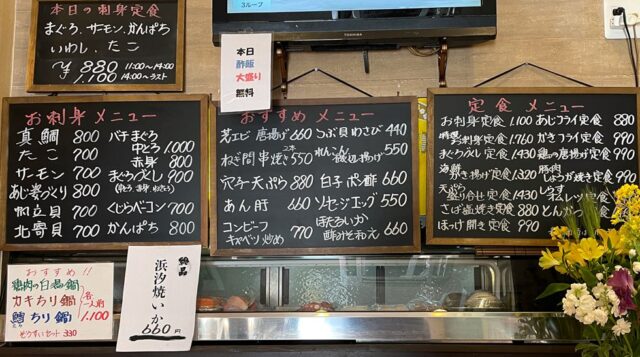 本日の刺身定食
まぐろ、サーモン、かんぱち
いわし、たこ
¥880 11:00〜14:00
1.100 14:00〜ラスト
3ループ
TOSHIBA
本日
酢飯
大盛り
無料
お刺身 メニュー
真鯛 800
たこ 700
サーモン 700
あじ姿づくり 800
帆立貝 700
北寄貝 700
バチまぐろ
中とろ 1.000
赤身 800
まぐろづくし 900
くじらベーコン 700
かんぱち 800
おすすめ メニュー
芝エビ 唐揚げ 660
ねぎ間串焼き 2本 550
穴子天ぷら 880
あん肝 660
コンビーフ
キャベツ炒め 770
つぶ貝わさび 440
れんこん
挟み揚げ 550
白子ポン酢 660
ソセージエッグ 550
ほたるいか
酢みそ和え 660
定食 メニュー
お刺身定食 1.100
お刺身定食 1.760
まぐろづくし定食 1.430
海鮮
かき揚げ定食 1.320
天ぷら
盛り合せ定食 1.430
さば塩焼き定食 880
ほっけ開き定食 990
あじフライ定食 880
かきフライ定食 990
鶏の唐揚げ定食 990
豚肉
しょうが焼き定食 990
しらす
オムレツ定食 990
とんかつ定食 990
おすすめ!!
鶏肉の白湯鍋
カキちり鍋
鱈ちり鍋
各一人前
1.100
ぞうすいセット 330
絶品
浜汐焼いか
660円